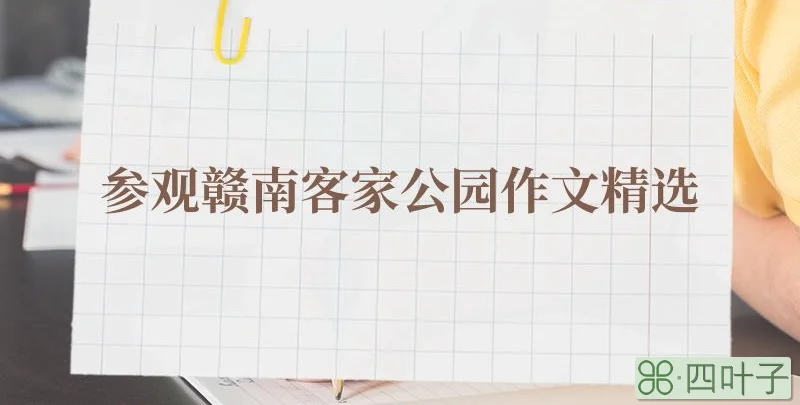 参观赣南客家公园作文精选
⌘·四叶子